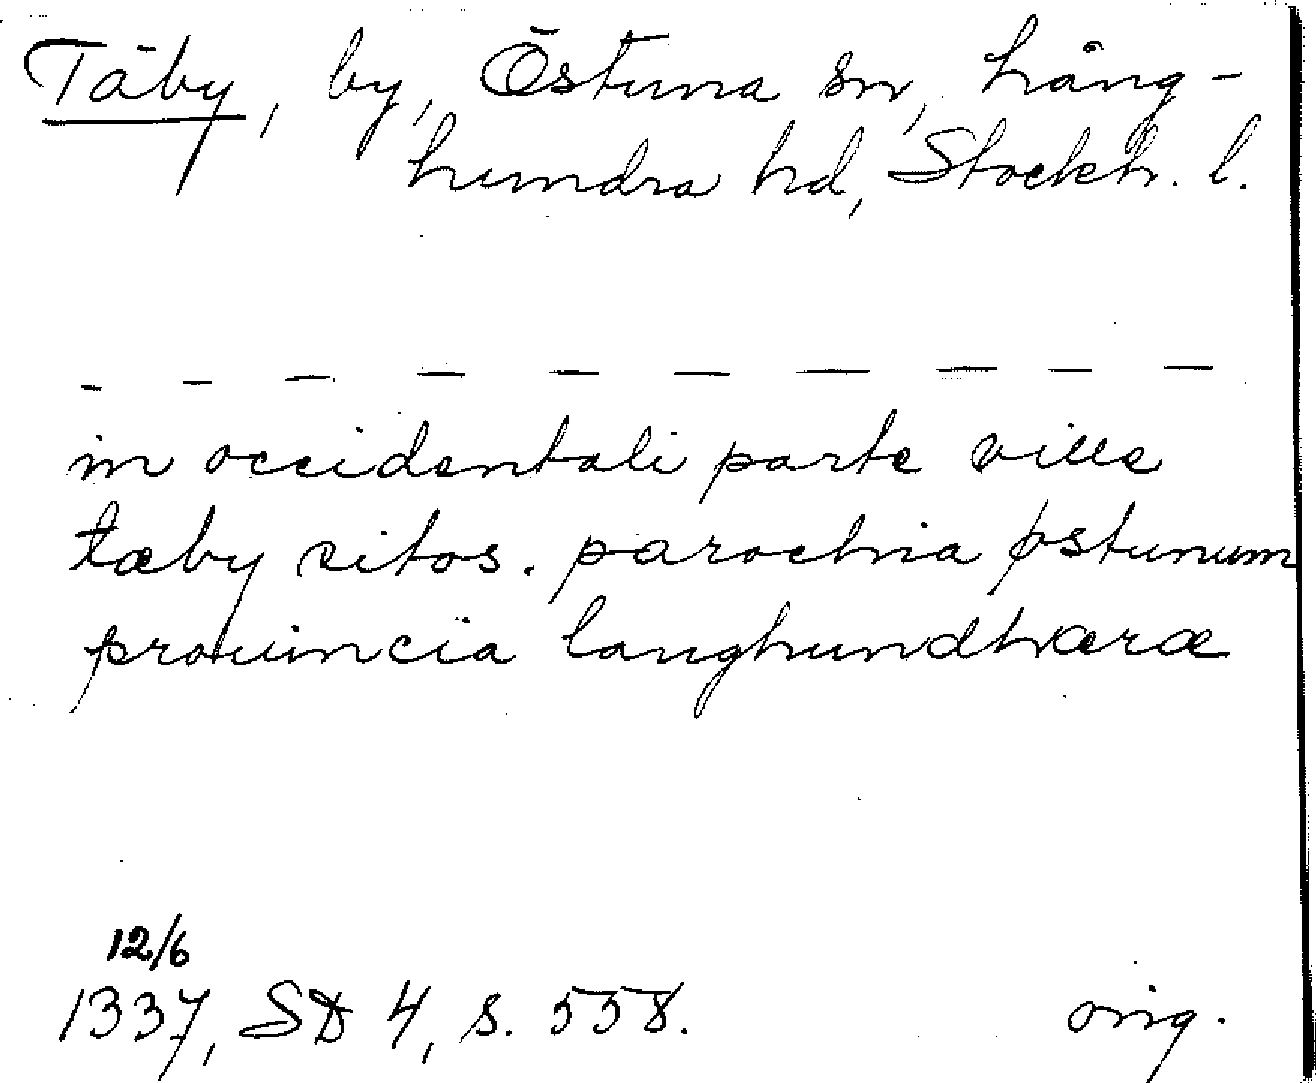 Täby, by, Östuna sn, Lång-
hundra hd, Stockh. l.
- - - - - - - - - -
in occidentali parte ville
tæby sitos. parochia østunum
prouincia langhundhæræ
12/6
1337, SD 4, s. 558.
orig.